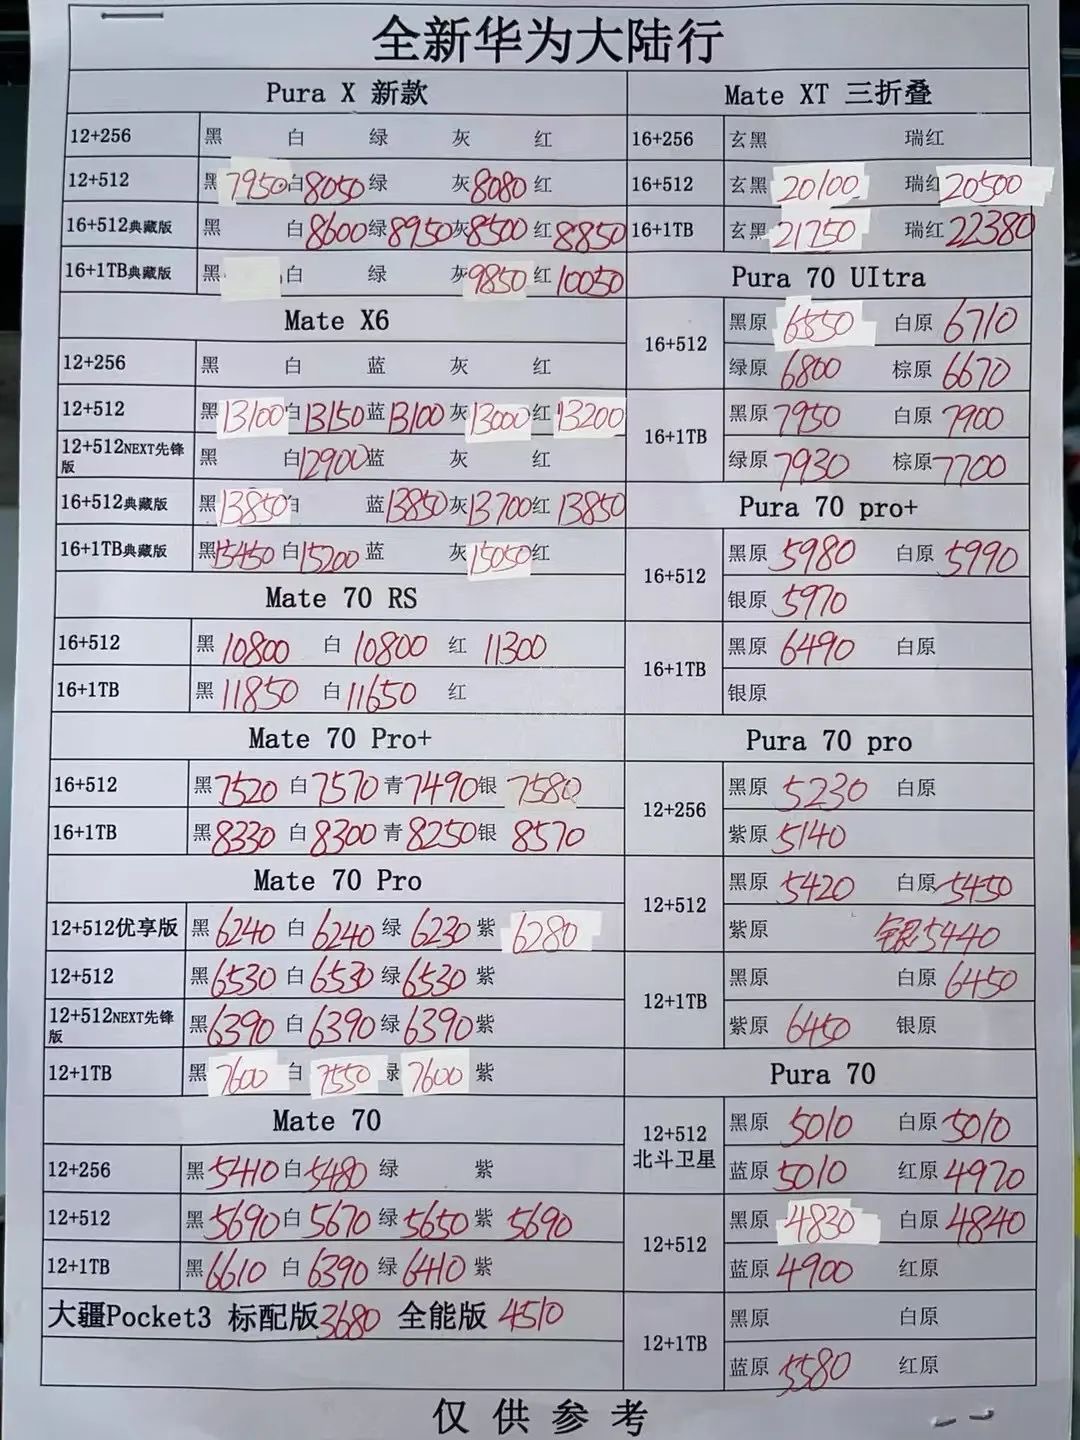 全新华为大陆行
Pura X 新款
12+256 黑 白 绿 灰 红
12+512 黑 7950 白 8050 绿 灰 8080 红
16+512典藏版 黑 白 8600 绿 8950 灰 8500 红 8850
16+1TB典藏版 黑 白 绿 灰 9850 红 10050
Mate X6
12+256 黑 白 蓝 灰 红
12+512 黑 13100 白 13150 蓝 13100 灰 13000 红 13200
12+512NEXT先锋版 黑 白 12900 蓝 灰 红
16+512典藏版 黑 13850 白 蓝 13850 灰 13700 红 13850
16+1TB典藏版 黑 15450 白 15200 蓝 灰 15050 红
Mate 70 RS
16+512 黑 10800 白 10800 红 11300
16+1TB 黑 11850 白 11650 红
Mate 70 Pro+
16+512 黑 7520 白 7570 青 7490 银 7580
16+1TB 黑 8330 白 8300 青 8250 银 8570
Mate 70 Pro
12+512优享版 黑 6240 白 6240 绿 6230 紫 6280
12+512 黑 6530 白 6530 绿 6530 紫
12+512NEXT先锋版 黑 6390 白 6390 绿 6390 紫
12+1TB 黑 7600 白 7550 绿 7600 紫
Mate 70
12+256 黑 5410 白 5480 绿 紫
12+512 黑 5690 白 5670 绿 5650 紫 5690
12+1TB 黑 6610 白 6390 绿 6410 紫
大疆Pocket3 标配版 3680 全能版 4510
Mate XT 三折叠
16+256 玄黑 瑞红
16+512 玄黑 20100 瑞红 20500
16+1TB 玄黑 21750 瑞红 22380
Pura 70 UItra
16+512 黑原 6550 白原 6710
绿原 6800 棕原 6670
16+1TB 黑原 7950 白原 7900
绿原 7930 棕原 7700
Pura 70 pro+
16+512 黑原 5980 白原 5990
银原 5970
16+1TB 黑原 6490 白原
银原
Pura 70 pro
12+256 黑原 5230 白原
紫原 5140
12+512 黑原 5420 白原 5450
紫原 银 5440
12+1TB 黑原 白原 6450
紫原 6450 银原
Pura 70
12+512 北斗卫星 黑原 5010 白原 5010
蓝原 5010 红原 4970
12+512 黑原 4830 白原 4840
蓝原 4900 红原
12+1TB 黑原 白原
蓝原 5580 红原
仅供参考